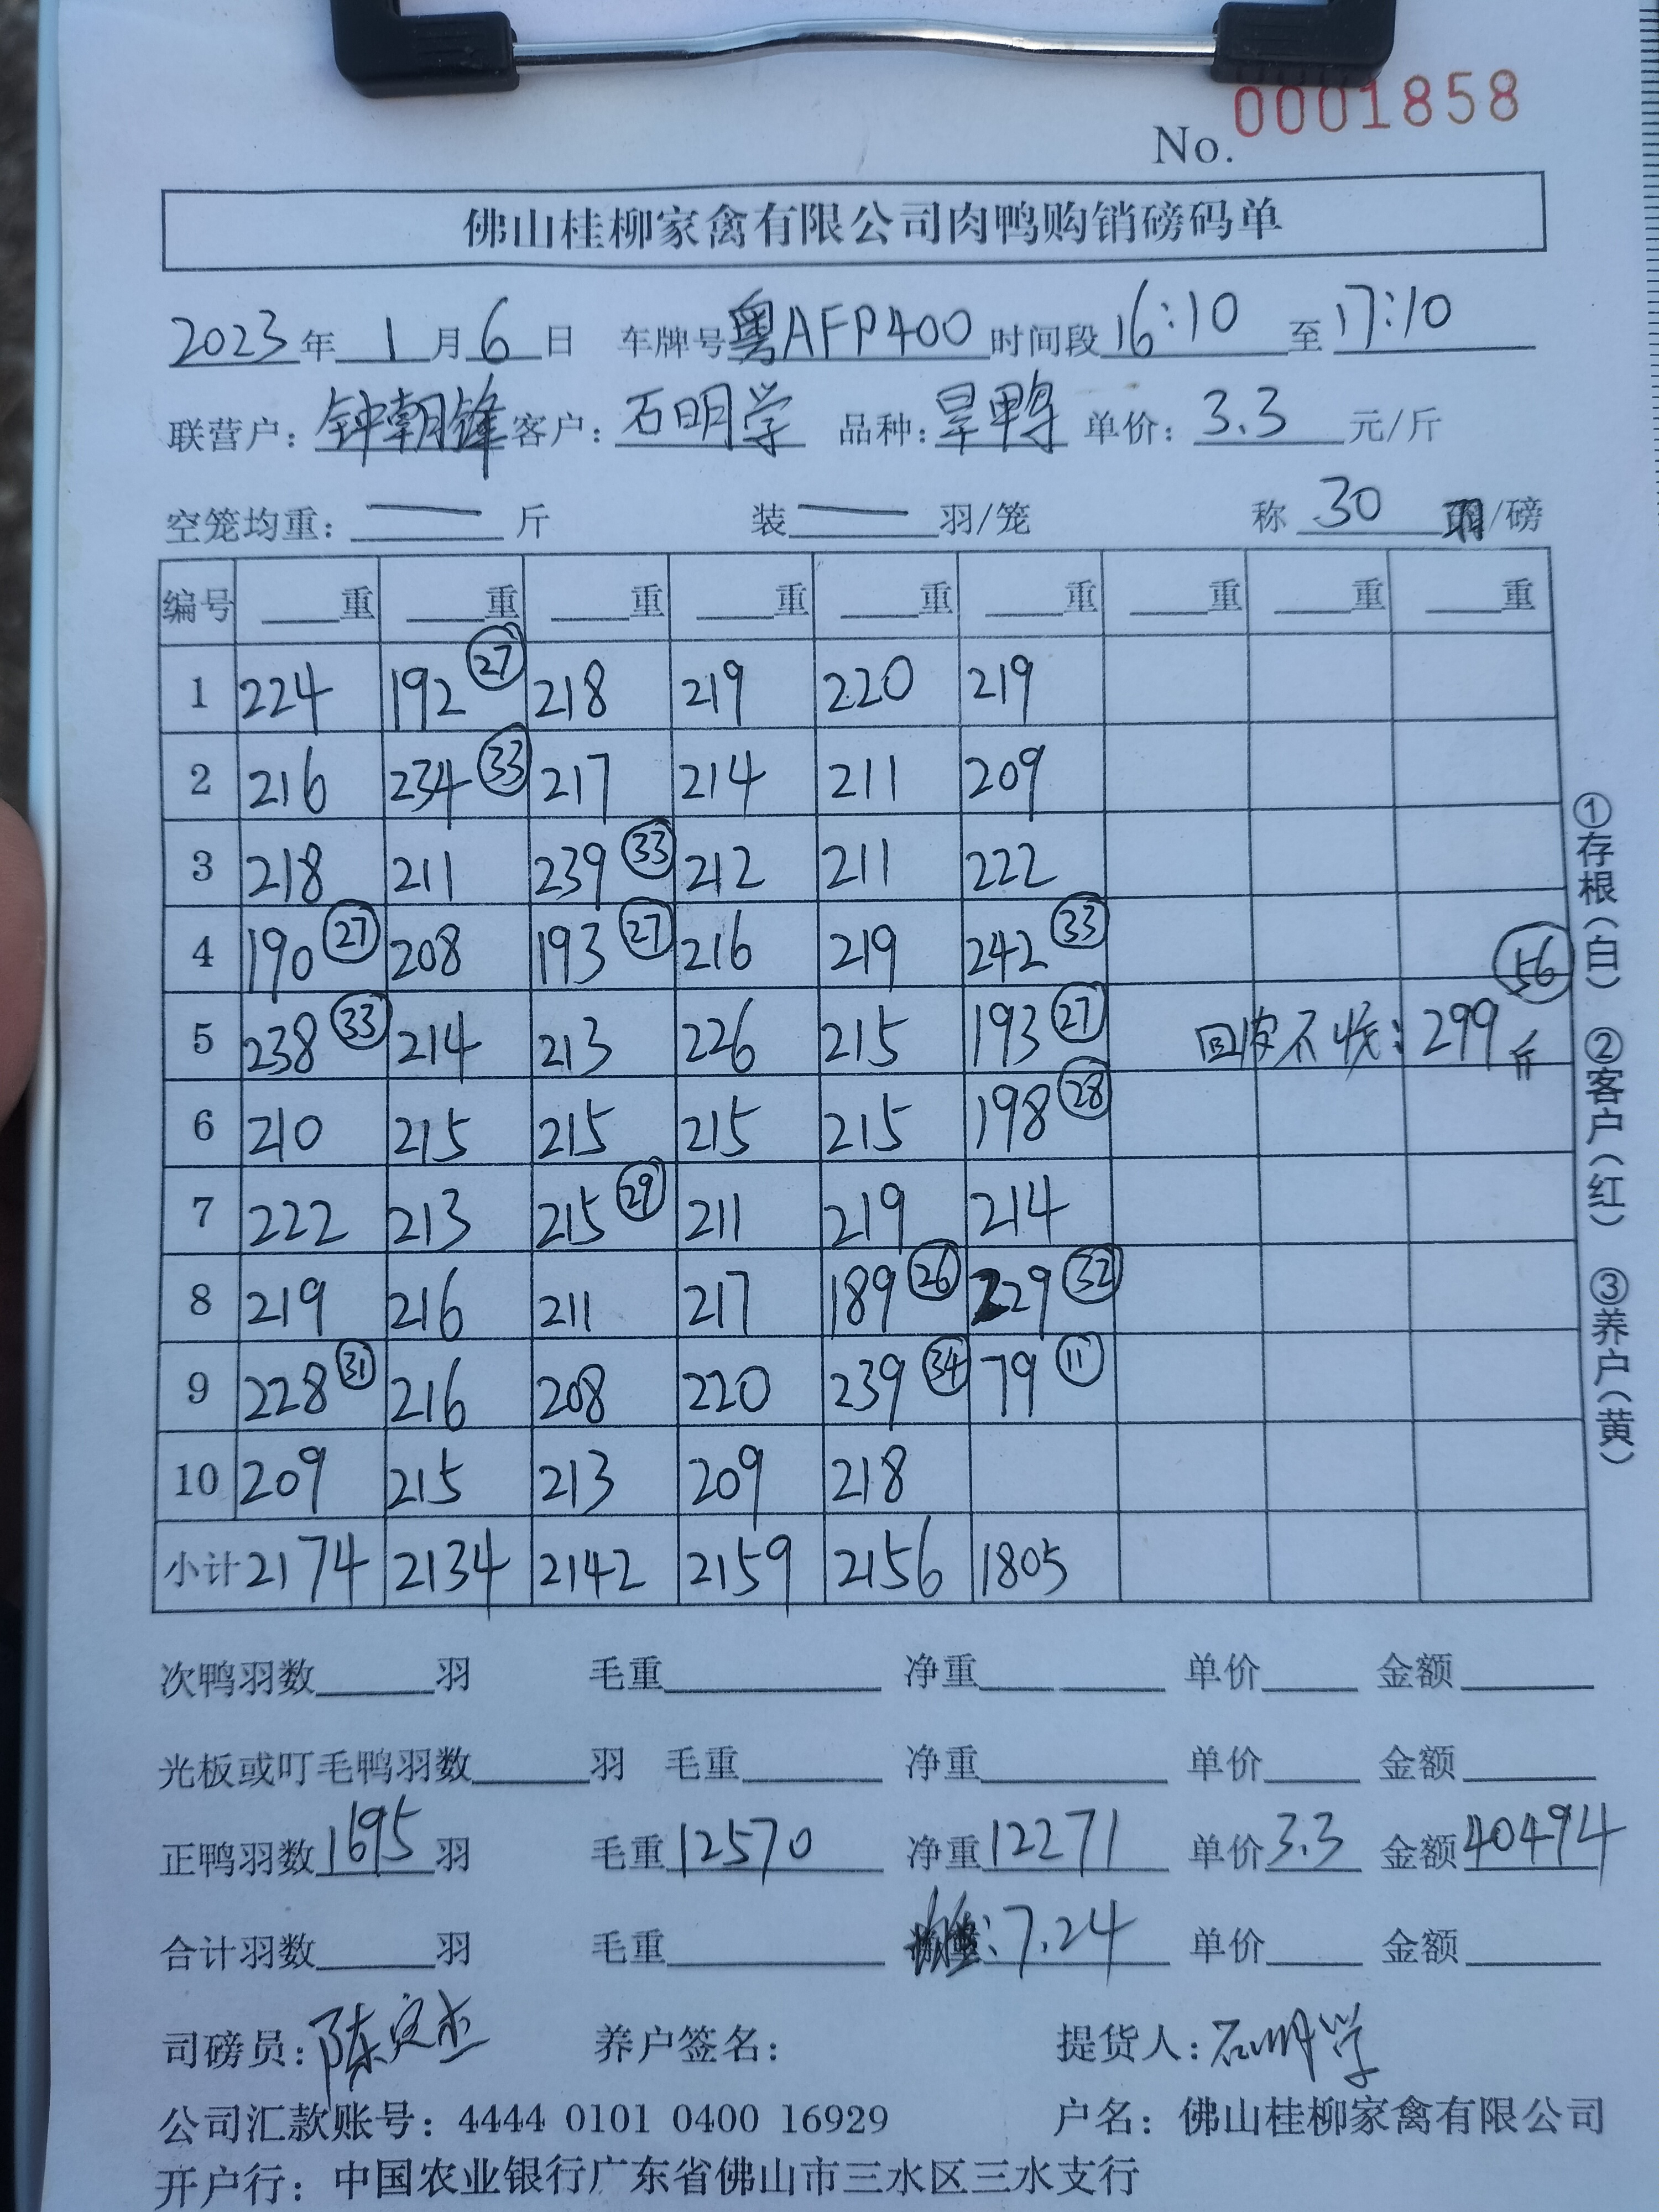 No. 0001858
佛山桂柳家禽有限公司肉鸭购销磅码单
2023年 1 月 6 日 车牌号 粤AFP400 时间段 16:10 至 17:10
联营户: 钟朝锋 客户: 石明学 品种: 旱鸭 单价: 3.3 元/斤
空笼均重: — 斤 装 — 羽/笼 称 30 羽/磅
编号 重 重 重 重 重 重 重 重 重
1 224 192 ㉗ 218 219 220 219
2 216 234 ㉝ 217 214 211 209
3 218 211 239 ㉝ 212 211 222
4 190 ㉗ 208 193 ㉗ 216 219 242 ㉝
5 238 ㉝ 214 213 226 215 193 ㉗ 不收: 299斤 56
6 210 215 215 215 215 198 ㉘
7 222 213 215 ㉙ 211 219 214
8 219 216 211 217 189 ㉖ 229 ㉜
9 228 ㉛ 216 208 220 239 ㉞ 79 ⑪
10 209 215 213 209 218
小计 2174 2134 2142 2159 2156 1805
①存根(白) ②客户(红) ③养户(黄)
次鸭羽数 羽 毛重 净重 单价 金额
光板或叮毛鸭羽数 羽 毛重 净重 单价 金额
正鸭羽数 1695 羽 毛重 12570 净重 12271 单价 3.3 金额 40494
合计羽数 羽 毛重 : 7.24 单价 金额
司磅员: 陈 养户签名: 提货人: 石明学
公司汇款账号: 4444 0101 0400 16929 户名: 佛山桂柳家禽有限公司
开户行: 中国农业银行广东省佛山市三水区三水支行